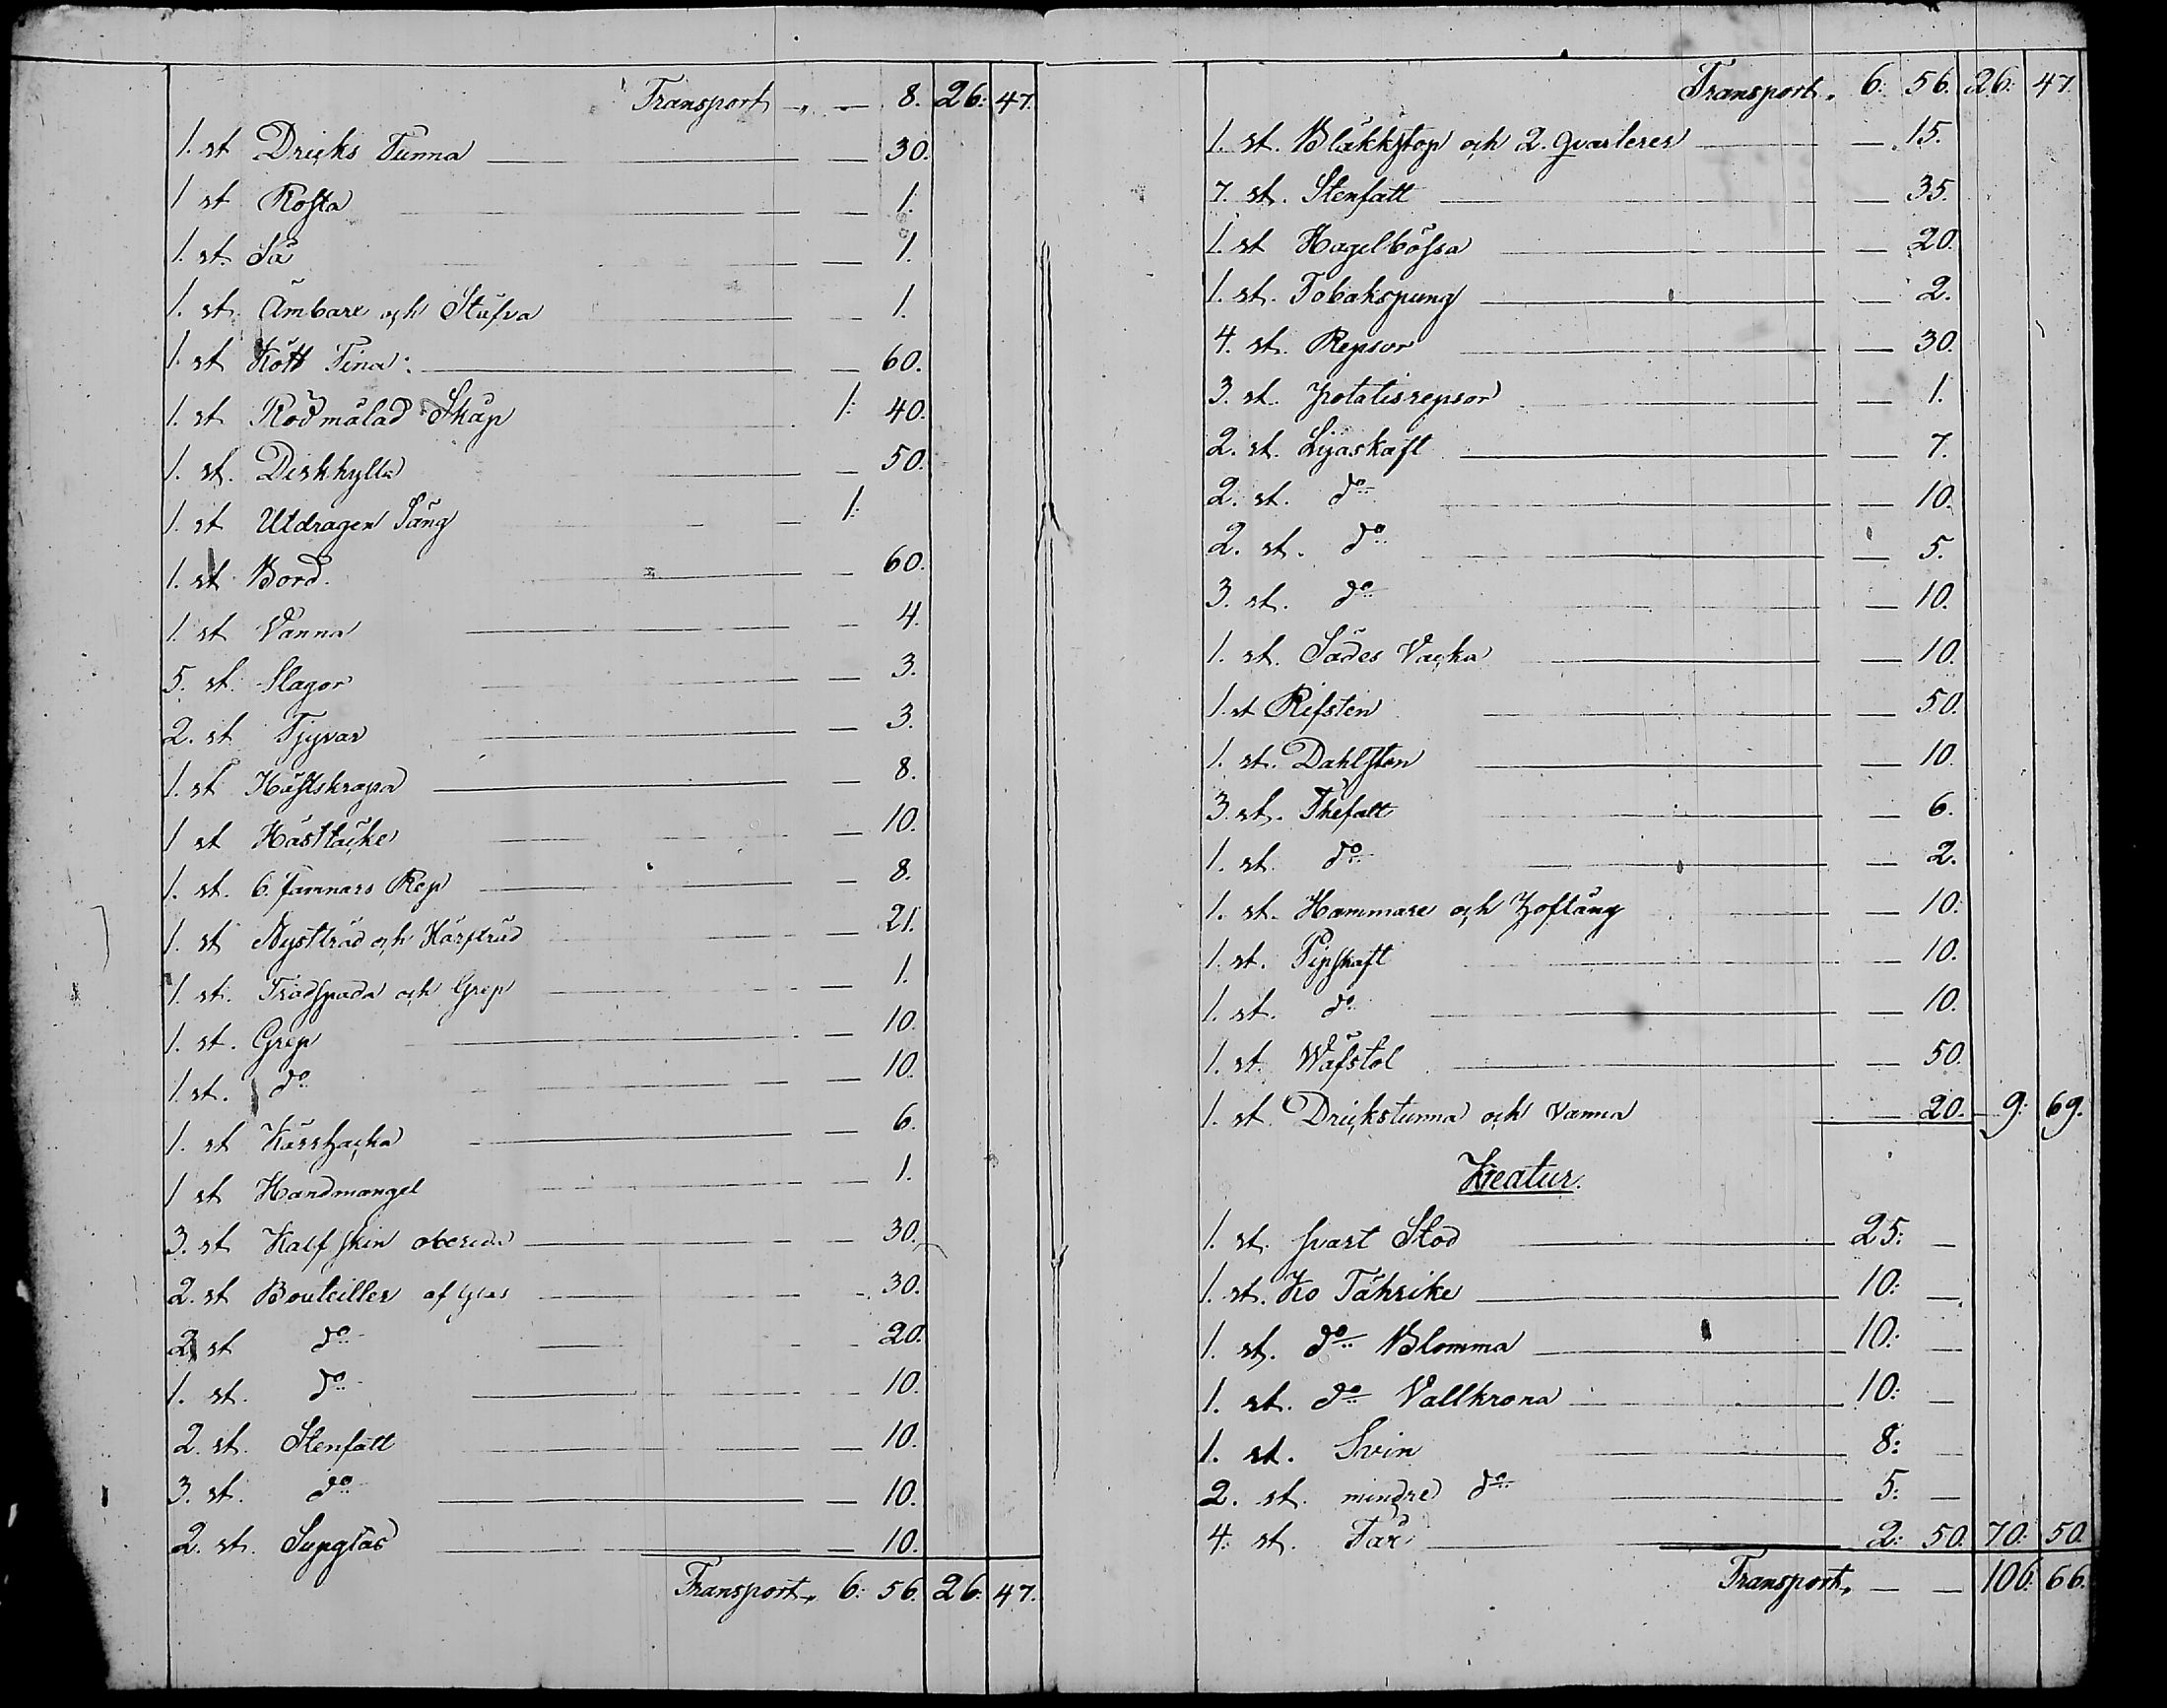 Transport „ — 8. 26: 47.
1. st Dricks Tunna — 30.
1 st Rosta — 1.
1. st. Så — 1.
1. st. Ämbare och Stäfva — 1.
1. st Kött Tina: — 60.
1. st Rödmålad Skåp 1: 40.
1. st. Diskhylla — 50.
1. st Utdragen Säng — 1:
1. st Bord. — 60.
1. st Vanna — 4.
5. st. Slagor — 3.
2. st Tjyvar — 3.
1. st Hästskrapa — 8.
1 st Hästtäcke — 10.
1. st. 6. famnars Rep — 8.
1. st Nystträd och Härfträd — 21.
1. st. Trädspada och Grep — 1.
1. st. Grep — 10.
1 st. do — 10.
1. st Kärrhacka — 6.
1 st Handmangel — 1.
3. st Kalfskin oberedd — 30.
2. st Bouteiller af glas — 30.
2 st do — 20.
1. st. do — 10.
2. st. Stenfatt — 10.
3. st. do — 10.
2. st. Supglas — 10.
Transport „ 6: 56. 26: 47.
Transport „ 6: 56. 26: 47.
1. st. Bläkkstop och 2. qvarterer — 15.
7. st. Stenfatt — 35.
1. st Hagelbössa — 20.
1. st. Tobakspung — 2.
4. st. Repsor — 30.
3. st. potatisrepsor — 1.
2. st. Lijaskaft — 7.
2. st. do — 10.
2. st. do — 5.
3. st. do — 10.
1. st. Sädes Vacka — 10.
1. st Rifsten — 50.
1. st. Dahlsten — 10.
3. st. Thefatt — 6.
1. st. do — 2.
1. st. Hammare och Hoftång — 10.
1. st. Pipskaft — 10.
1. st. do — 10.
1. st. Wäfstol — 50.
1. st. Drickstunna och vanna — 20. 9: 69.
Kreatur.
1. st. svart Stod — 25: —
1. st. Ko Tährike — 10: —
1. st. do Blomma — 10: —
1. st. do Vallkrona — 10: —
1. st. Svin — 8: —
2. st. mindre do — 5: —
4. st. Får — 2: 50. 70: 50.
Transport „ — — 106: 66.